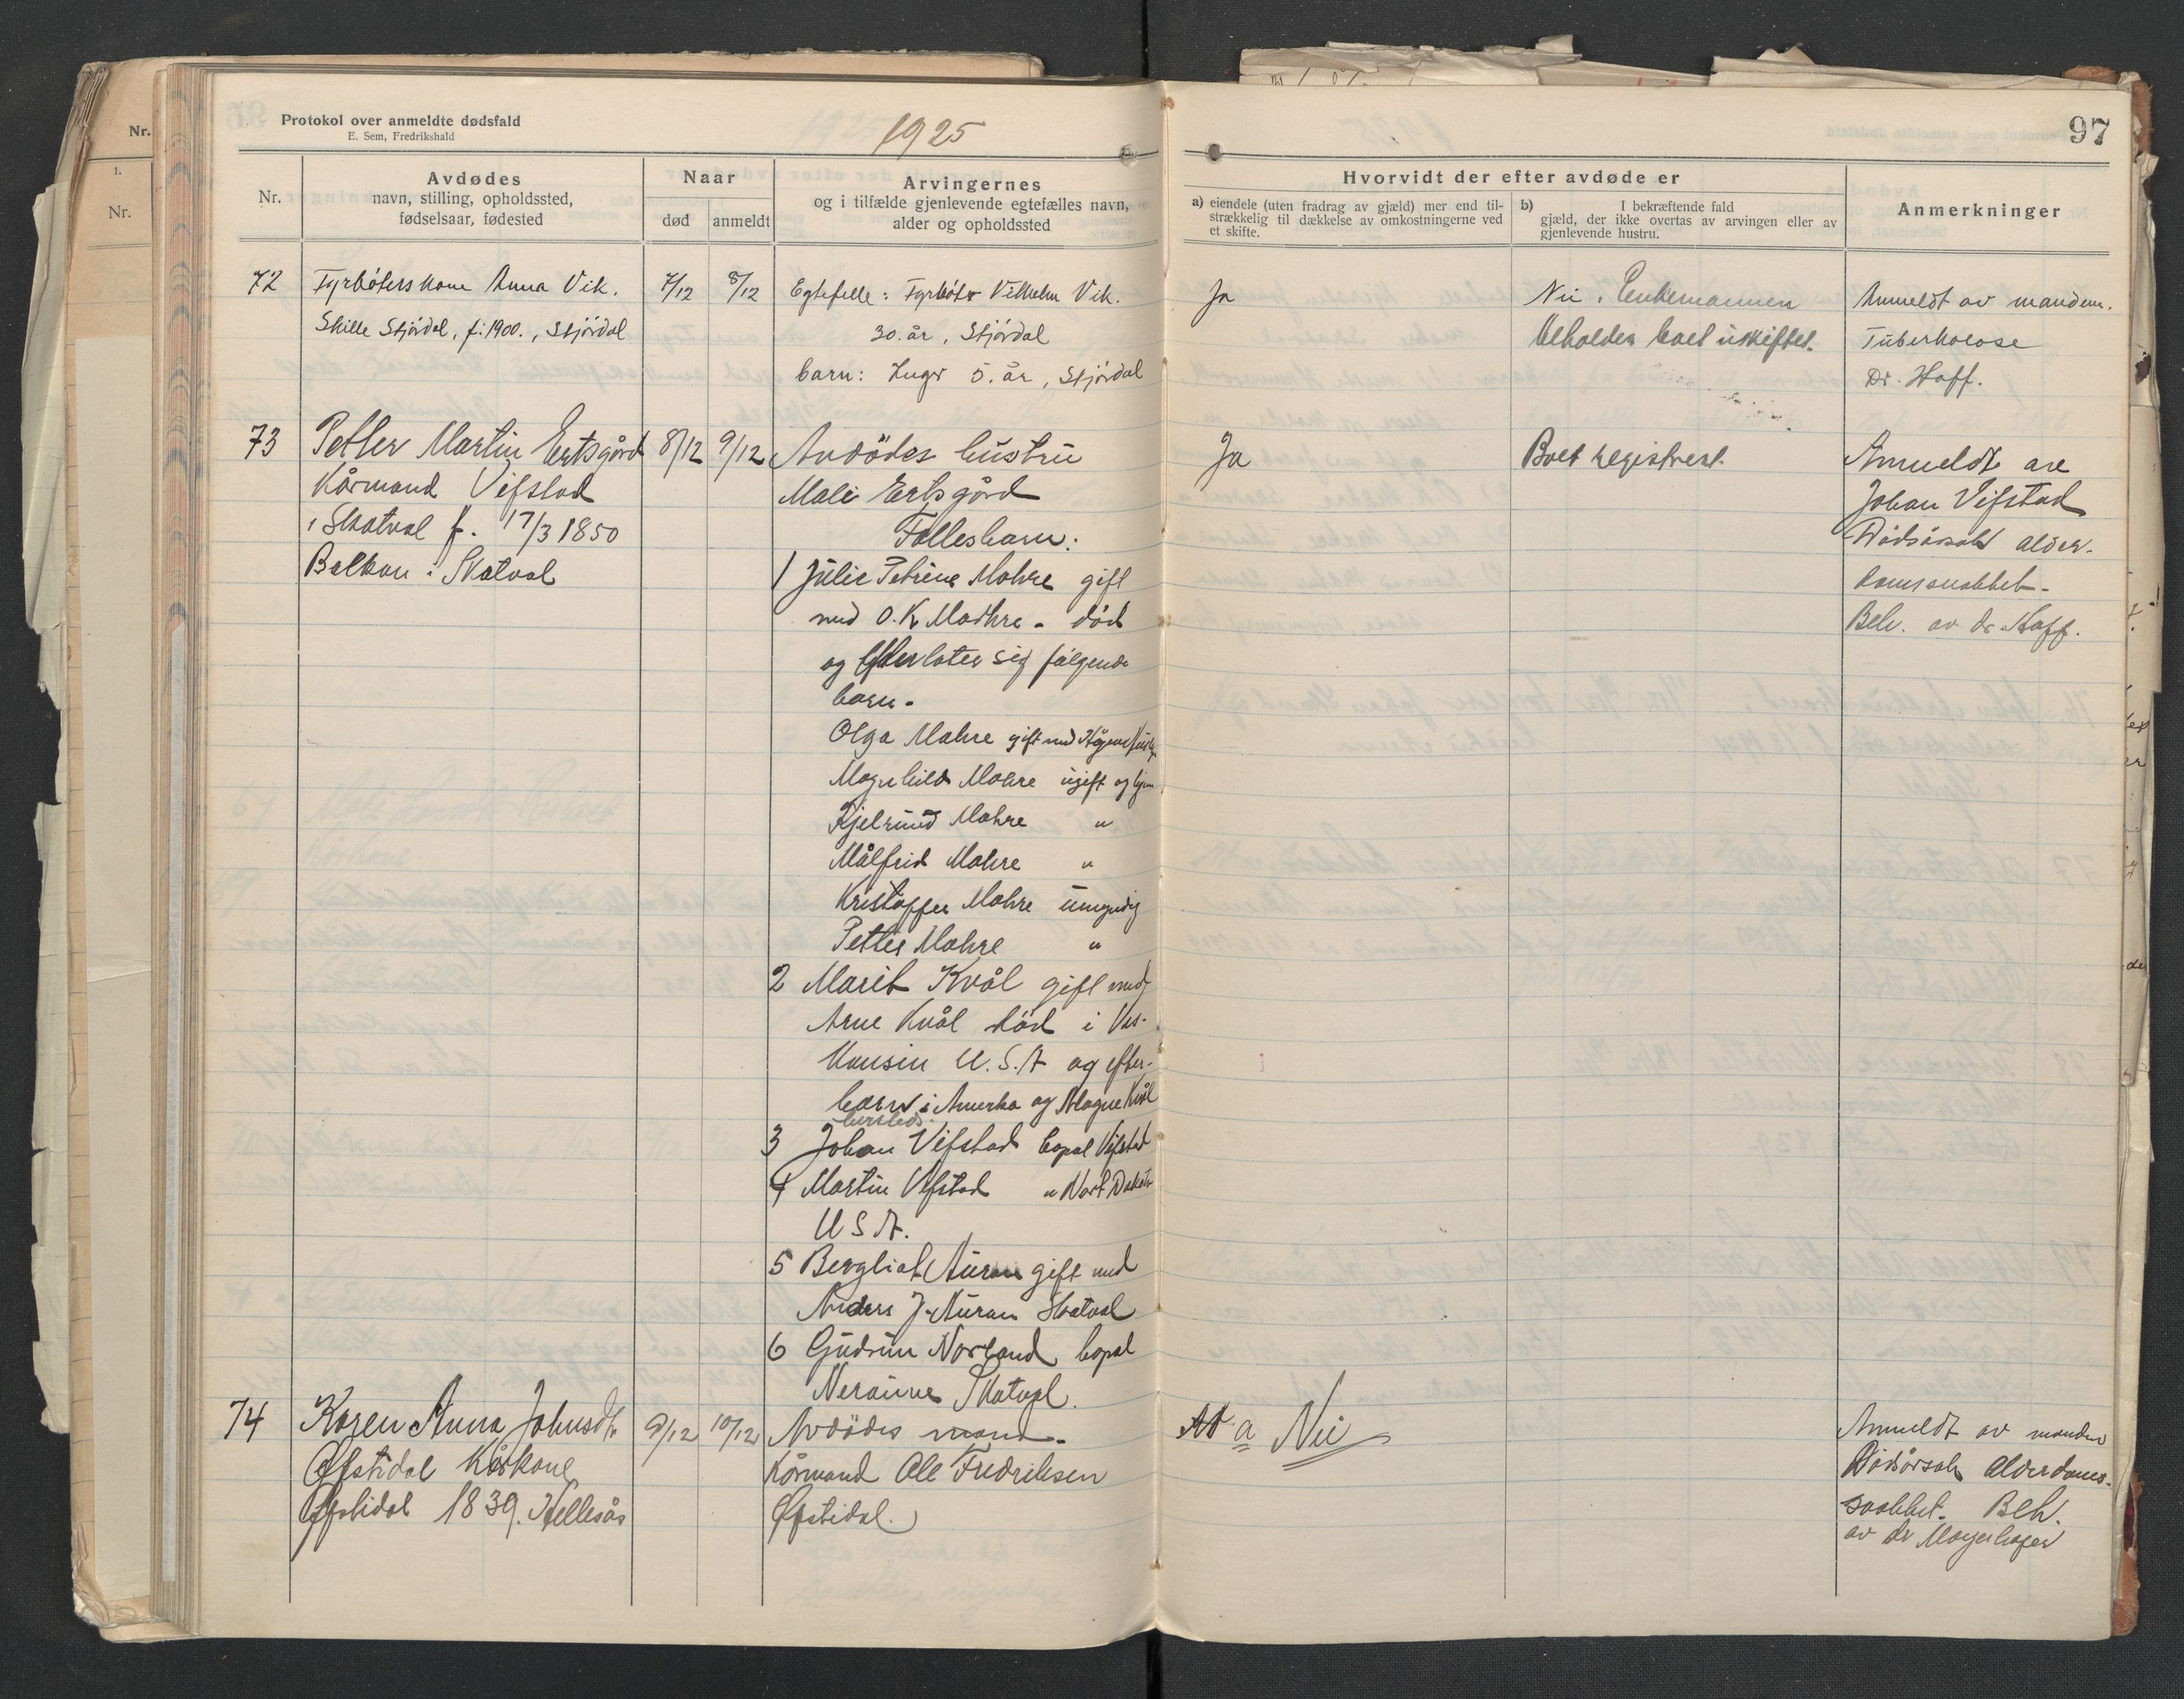 Nr.
1.
Nr.
Protokol over anmeldte dødsfald
E. Sem, Fredrikshald
1925
97
Nr.
Avdødes
navn, stilling, opholdssted,
fødselsaar, fødested
Naar
død
anmeldt
Arvingernes
og i tilfælde gjenlevende egtefælles navn,
alder og opholdssted
Hvorvidt der efter avdøde er
a) eiendele (uten fradrag av gjæld) mer end til-
strækkelig til dækkelse av omkostningerne ved
et skifte.
b) I bekræftende fald
gjæld, der ikke overtas av arvingen eller av
gjenlevende hustru.
Anmerkninger
72
Fyrbøters kone Anna Vik.
Skille Stjördal, f: 1900., Stjördal
7/12
8/12
Egtefelle: Fyrbøter Vilhelm Vik.
30. år, Stjördal
barn: Inger 5. år, Stjördal
Ja
Nei. Enkemannen
beholder boet uskiftet.
Anmeldt av manden.
Tuberkolose
Dr. Hoff.
73
Petter Martin Ertsgård
Kårmand Vifstad
i Skatval f. 17/3 1850
Balkan i Skatval
8/12
9/12
Avdödes hustru
Mali Ertsgård
Fællesbarn:
1 Julie Petrine Mohre gift
med O. K. Mæhre - död
og efterlater sig følgende
barn -
Olga Mæhre gift med
Magnhild Mæhre ugift og
Kjelrund Mæhre "
Målfrid Mæhre "
Kristoffer Mæhre umyndig
Petter Mæhre "
2 Marit Kvål gift med
Arne Kvål död i Vis-
konsin U.S.A og efter-
barn i Amerka og Magne Kvål
3 Johan Vifstad bopæl Vifstad
4 Martin Vifstad " Nort Dakota
U S A.
5 Bergliot Auran gift med
Anders J. Auran Skatval
6 Gudrun Norland bopæl
Neraune Skatval.
Ja
Boet registrert.
Anmeldt av
Johan Vifstad
Dödsårsak alder-
domsvakhet -
Beh. av dr. Hoff.
74
Karen Anna Johnsdtr
Øfstidal Kårkone
Øfstidal 1839. Hellesås
9/12
10/12
Avdödes mand -
Kårmand Ole Fredriksen
Øfstidal.
a Nei
Anmeldt av manden
Dödsårsak Alderdoms-
svakhet. Beh.
av dr Mayerhofer